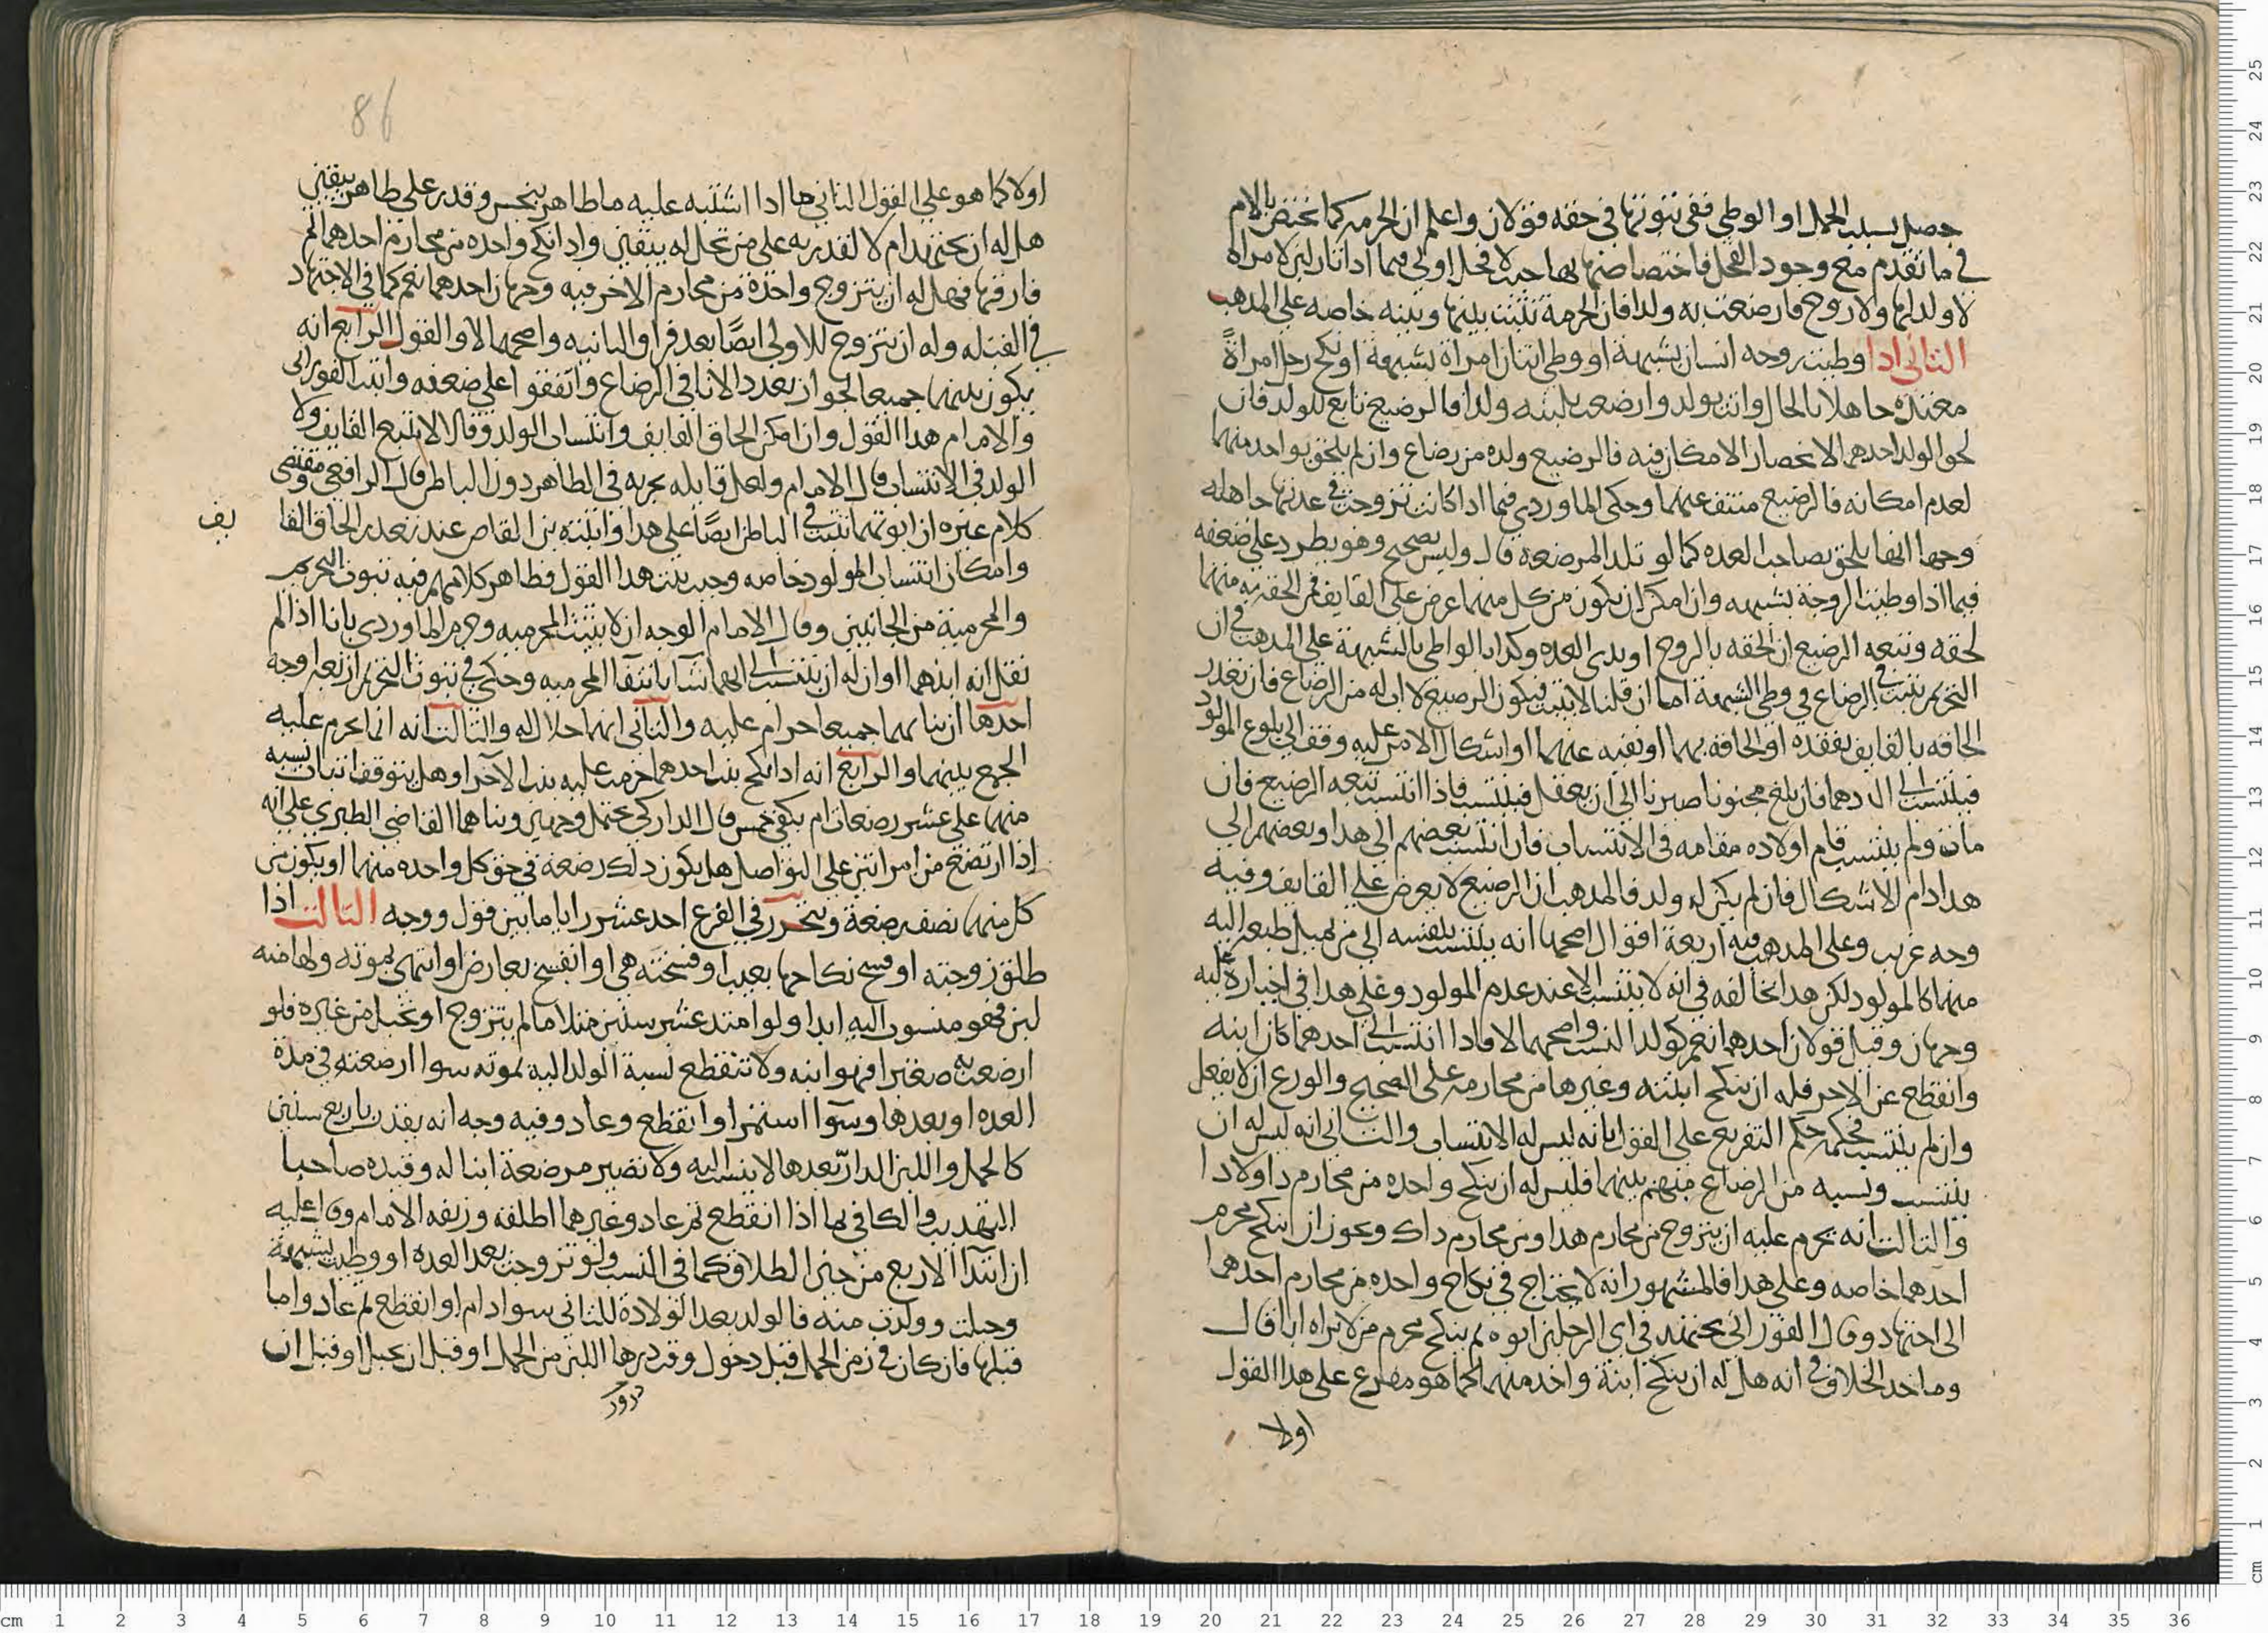 حصل بسبب الحمل او الوطي ففي ثبوتها في حقه قولان واعلم ان الحرمه كما تختص بالام
في ما تقدم مع وجود الفحل فاختصاصها بها حيث لا فحل اولى فيما اذا ثار لبن لامراة
لا ولد لها ولا زوج فارضعت به ولدا فان الحرمة تثبت بينها وبينه خاصه على المذهب
الثاني اذا وطيت زوجه انسان بشبهة او وطي اثنان امراة بشبهة او نكح رجل امراةً
معتده جاهلا بالحال واتت بولد وارضعت بلبنه ولدا فالرضيع تابع للولد فان
لحق الولد احدهما لانحصار الامكان فيه فالرضيع ولده من رضاع وان لم يلحق بواحد منهما
لعدم امكانه فالرضيع منتف عنهما وحكى الماوردي فيما اذا كانت تزوجت في عدتها جاهله
وجها انها يلحق بصاحب العده كما لو تلد المرضعه قال وليس بصحيح وهو يطرد على ضعفه
فيما اذا وطيت الزوجة بشبهه وان امكن ان يكون من كل منهما عرض على القايف فمن الحقه به منهما
لحقه وتبعه الرضيع ان الحقه بالزوج او بذي العده وكذا بالواطي بالشبهة على المذهب في ان
التحريم يثبت في الرضاع في وطي الشبهة اما ان قلنا لا يثبت فيكون الرضيع لا اب له من الرضاع فان تعذر
الحاقه بالقايف بفقده او الحاقه بهما او نفيه عنهما او اشكال الامر عليه وقف الى بلوغ المولود
فينتسب الى احدهما فان بلغ مجنونا صبرنا الى ان يعقل فينتسب فاذا انتسب تبعه الرضيع فان
مات ولم ينتسب قام اولاده مقامه في الانتساب فان انتسب بعضهم الى هذا وبعضهم الى
هذا دام الاشكال فان لم يكن له ولد فالمذهب ان الرضيع لا يعرض على القايف وفيه
وجه غريب وعلى المذهب فيه اربعة اقوال اصحها انه ينتسب بنفسه الى من يميل طبعه اليه
منهما كالمولود لكن هذا يخالفه في انه لا ينتسب الا عند عدم المولود وعلى هذا في اجباره عليه
وجهان وقيل قولان احدهما نعم كولد النسب واصحهما لا فاذا انتسب الى احدهما كان ابنه
وانقطع عن الاخر فله ان ينكح ابنته وغيرها من محارمه على الصحيح والورع ان لا يفعل
وان لم ينتسب فحكمه حكم التفريع على القول بانه ليس له الانتساب والثاني انه ليس له ان
ينتسب ونسبه من الرضاع مبهم بينهما فليس له ان ينكح واحده من محارم ذا ولا ذا
والثالث انه يحرم عليه ان يتزوج من محارم هذا ومن محارم ذاك ويجوز ان ينكح محرم
احدهما خاصه وعلى هذا فالمشهور انه لا يحتاج في نكاح واحده من محارم احدهما
الى اجتهاد وقال الفوراني يجتهد في اي الرجلين ابوه ثم ينكح محرم من لا يراه ابا قال
وماخذ الخلاف في انه هل له ان ينكح ابنة واحد منهما هو مفرع على هذا القول
اولا
86
اولا كما هو على القول الثاني ما اذا اشتبه عليه ما طاهر بنجس وقدر على طاهر بيقين
هل له ان يجتهد ام لا لقدرته على من تحل له بيقين واذا نكح واحده من محارم احدهما ثم
فارقها فهل له ان يتزوج واحدة من محارم الاخر فيه وجهان احدهما نعم كما في الاجتهاد
في القبله وله ان يتزوج للاولى ايضًا بعد فراق الثانيه واصحهما لا والقول الرابع انه
يكون بينهما جميعا لجواز تعدد الابا في الرضاع واتفقوا على ضعفه واثبت الفوراني
والامام هذا القول وان امكن الحاق القايف وانتساب الولد وقالا لا يتبع القايف ولا
الولد في الانتساب قال الامام ولعل قايله يجريه في الظاهر دون الباطن قال الرافعي ومقتضى
كلام غيره ان ابوتهما تثبت في الباطن ايضًا على هذا واثبته بن القاص عند تعذر الحاق القا
يف
وامكان انتساب المولود خاصه وحيث يثبت هذا القول فظاهر كلامهم فيه ثبوت التحريم
والمحرمية من الجانبين وقال الامام الوجه ان لا يثبت المحرميه وجزم الماوردي بانا اذا لم
نقل انه ابنهما او ان له ان ينتسب الى ايهما شا بانتفا المحرميه وحكى في ثبوت التحريم اربعة اوجه
احدها ان بناتهما جميعا حرام عليه والثاني انهما حلال له والثالث انه انما يحرم عليه
الجمع بينهما والرابع انه اذا نكح بنت احدهما حرمت عليه بنت الآخر وهل يتوقف اثبات نسبه
منهما على عشر رضعات ام يكفي خمس قال الداركي يحتمل وجهين وبناهما القاضي الطبري على انه
اذا ارتضع من امراتين على التواصل هل يكون ذلك رضعة في حق كل واحده منهما او يكون من
كل منهما نصف رضعة ويتحرر في الفرع احد عشر رايا ما بين قول ووجه الثالث اذا
طلق زوجته او فسخ نكاحها بعيب او فسخته هي او انفسخ بعارض او انتهى بموته ولها منه
لبن فهو منسوب اليه ابدا ولو امتد عشر سنين مثلا ما لم يتزوج او تحبل من غيره فلو
ارضعت به صغيرا فهو ابنه ولا تنقطع نسبة الولد اليه بموته سوا ارضعته في مدة
العده او بعدها وسوا استمر او انقطع وعاد وفيه وجه انه يقدر باربع سنين
كالحمل واللبن الدار بعدها لا ينسب اليه ولا تصير مرضعة ابنا له وقيده صاحبا
التهذيب والكافي بها اذا انقطع ثم عاد وغيرهما اطلقه وزيفه الامام وقال عليه
ان ابتدا الاربع من حين الطلاق كما في النسب ولو تزوجت بعد العده او وطيت بشبهة
وحبلت وولدت منه فالولد بعد الولادة للثاني سوا دام او انقطع ثم عاد واما
قبلها فان كان في زمن الحمل قبل دخول وقت درها اللبن من الحمل او قبل ان تحبل او قبل ان